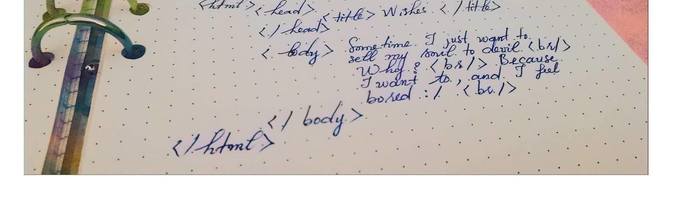 <html> <head> <title> Wishes. </title>
</head>
<body> Sometime. I just want to.
sell my soul to devil. <br/>
Why? <br/> Because
I want to, and I feel
bored :/ <br/>
</body>
</html>